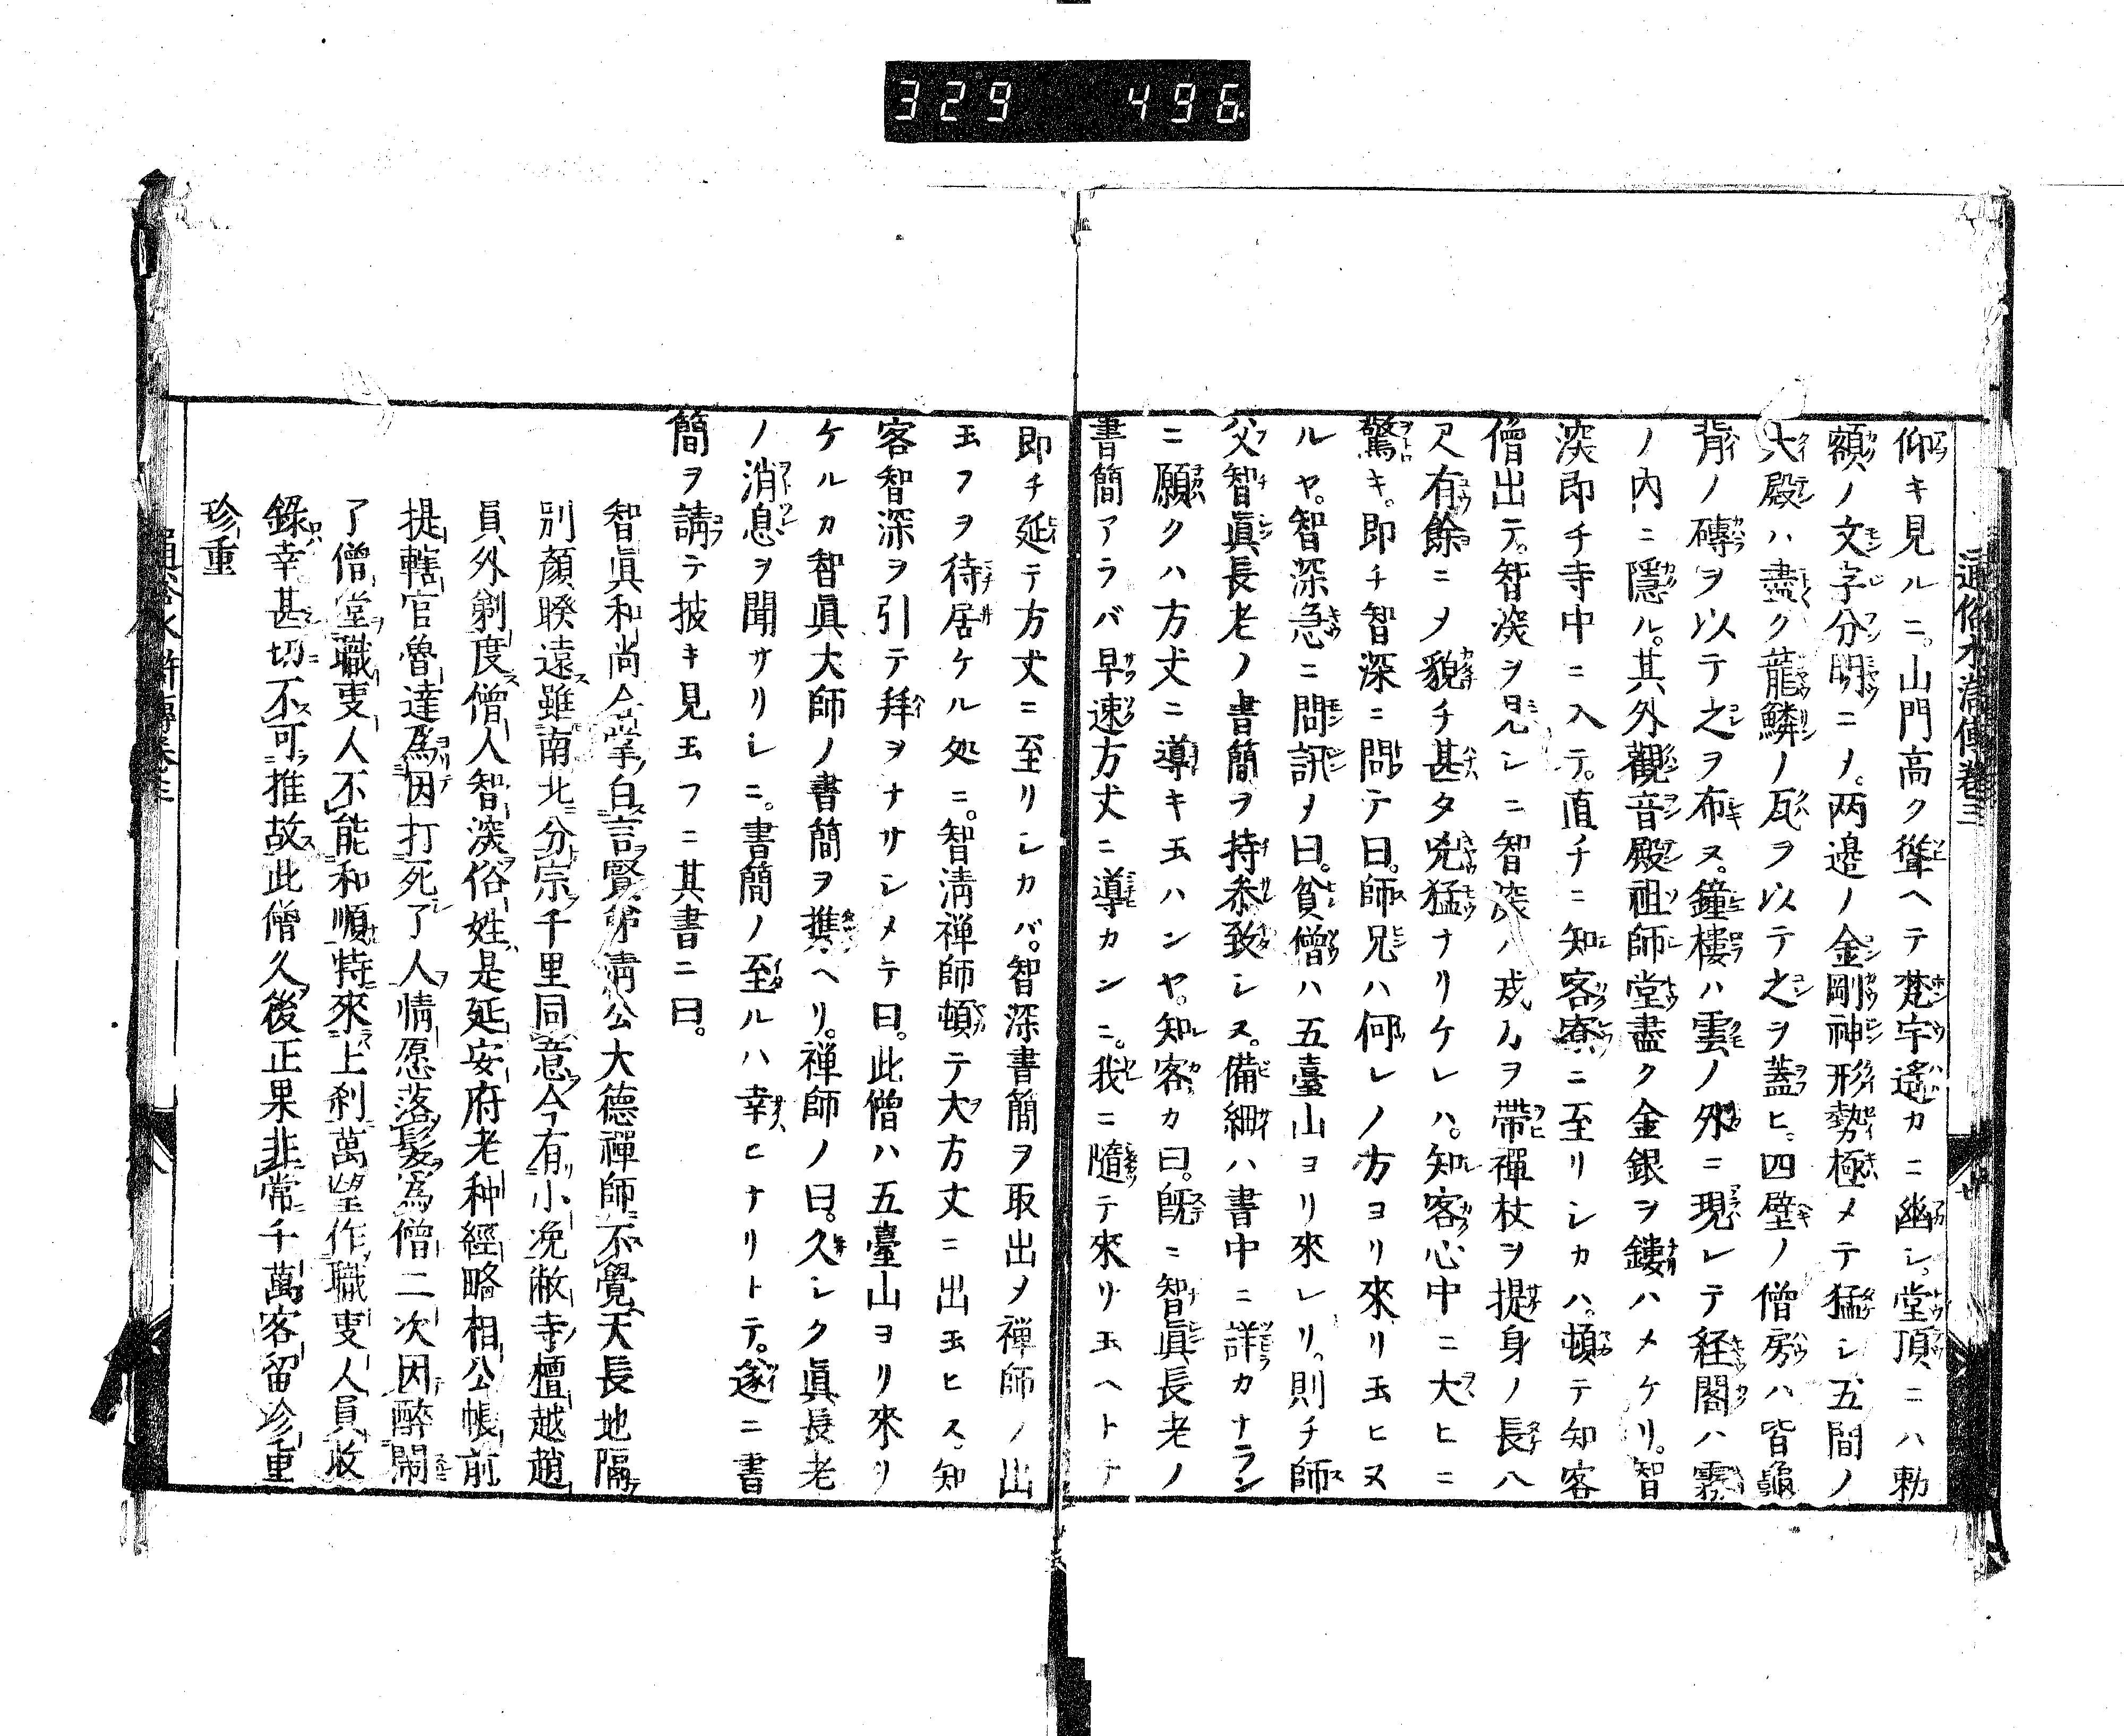 329 496
通俗水滸傳卷三
仰キ見ルニ。山門高ク聳ヘテ梵宇遙カニ幽シ。堂頂ニハ勅
額ノ文字分明ニメ。两邉ノ金剛神形勢極メテ猛シ五間ノ
大殿ハ盡ク龍鱗ノ瓦ヲ以テ之ヲ蓋ヒ。四壁ノ僧房ハ皆龜
背ノ磚ヲ以テ之ヲ布ス。鐘樓ハ雲ノ外ニ現レテ経閣ハ霧
ノ內ニ隱ル。其外觀音殿祖師堂盡ク金銀ヲ鏤ハメケリ。智
深即チ寺中ニ入テ。直チニ知客寮ニ至リシカハ。頓テ知客
僧出テ。智深ヲ見シニ智深ハ戒刀ヲ帶禪杖ヲ提身ノ長八
尺有餘ニメ貌チ甚タ兇猛ナリケレハ。知客心中ニ大ヒニ
驚キ。即チ智深ニ問テ曰。師兄ハ何レノ方ヨリ來リ玉ヒヌ
ルヤ。智深急ニ問訊メ曰。貧僧ハ五臺山ヨリ來レリ。則チ師
父智眞長老ノ書簡ヲ持叅致シヌ。備細ハ書中ニ詳カナラン
ニ願クハ方丈ニ導キ玉ハンヤ。知客カ曰。既ニ智眞長老ノ
書簡アラバ早速方丈ニ導カンニ。我ニ隨テ來リ玉ヘトテ
即チ延テ方丈ニ至リシカバ。智深書簡ヲ取出メ禅師ノ出
玉フヲ待居ケル処ニ。智淸禅師頓テ大方丈ニ出玉ヒヌ。知
客智深ヲ引テ拜ヲナサシメテ曰。此僧ハ五臺山ヨリ來リ
ケルカ智眞大師ノ書簡ヲ携ヘリ。禅師ノ曰。久シク眞長老
ノ消息ヲ聞サリシニ。書簡ノ至ルハ幸ヒナリトテ。遂ニ書
簡ヲ請テ披キ見玉フニ其書ニ曰。
智眞和尚合掌白言賢弟淸公大德禪師不覺天長地隔
別顏睽遠雖南北分宗千里同意今有小浼敝寺檀越趙
員外剃度僧人智深俗姓是延安府老种經略相公帳前
提轄官魯達爲因打死了人情愿落髮爲僧二次因醉鬧
了僧堂職叓人不能和順特來上刹萬望作職叓人員收
錄幸甚切不可推故此僧久後正果非常千萬容留珍重
珍重
通俗水滸傳卷三